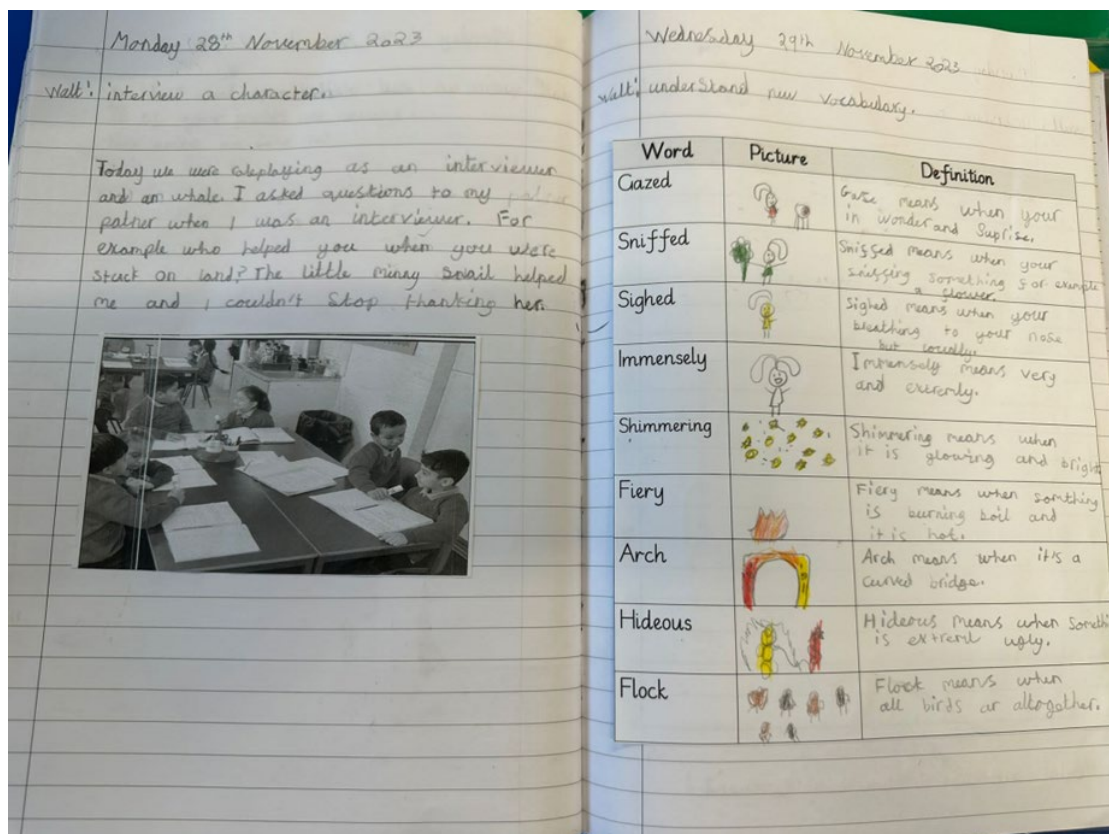 Monday 28th November 2023
Walt: interview a character.
Today we were roleplaying as an interviewer
and an whale. I asked questions to my
patner when I was an interviewer. For
example who helped you when you were
stuck on land? The little minny snail helped
me and I couldn't stop thanking her.
Wednesday 29th November 2023
Walt: understand new vocabulary.
Word Picture Definition
Gazed
Gaze means when your
in wonder and Suprise.
Sniffed
Sniffed means when your
sniffing something for example
a flower.
Sighed
Sighed means when your
breathing to your nose
but loudly.
Immensely
Immensely means very
and extremly.
Shimmering
Shimmering means when
it is glowing and bright
Fiery
Fiery means when somthing
is burning boil and
it is hot.
Arch
Arch means when it's a
curved bridge.
Hideous
Hideous means when somethi
is extreml ugly.
Flock
Flock means when
all birds ar altogether.